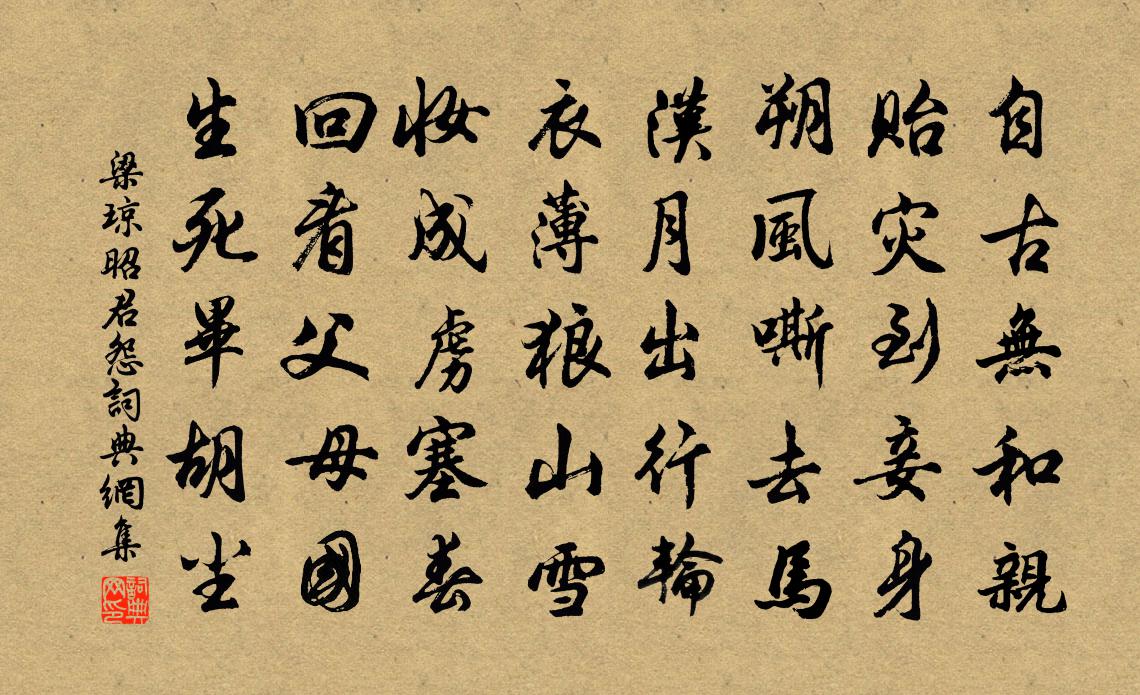 自古無和親
貽灾到妾身
朔風嘶去馬
漢月出行輪
衣薄狼山雪
妆成虜塞春
回看父母國
生死畢胡尘
梁琼昭君怨詞典網集
詞典网印